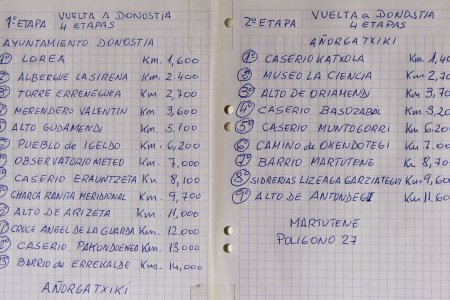 1ª ETAPA VUELTA a DONOSTIA
4 ETAPAS
AYUNTAMIENTO DONOSTIA
1º LOREA Km. 1,600
ALBERGUE LA SIRENA Km. 2.400
TORRE ERRENEGUERA Km. 2,700
MERENDERO VALENTIN Km. 3,600
ALTO GUDAMENDI Km. 5,100
PUEBLO de IGELDO Km. 6,200
OBSERVATORIO METEO Km. 7,000
CASERIO ERAUNTZETA Km. 8,100
CHARCA RANITA MERIDIONAL Km. 9,700
ALTO DE ARIZETA Km. 11,000
CRUCE ANGEL DE LA GUARDA Km. 12.000
CASERIO PAKONDOENEA Km. 13.000
BARRIO de ERREKALDE Km. 14,000
AÑORGATXIKI
2ª ETAPA VUELTA a DONOSTIA
4 ETAPAS
AÑORGATXIKI
1º CASERIO KATXOLA Km. 1,40
2º MUSEO LA CIENCIA Km. 2,70
3º ALTO DE ORIAMENDI Km. 3,70
4º CASERIO BASOZABAL Km. 5,20
5º CASERIO MUNTOGORRI Km 6.200
6º CAMINO de OKENDOTEGI Km 7.000
7º BARRIO MARTUTENE Km 8,70
8º SIDRERIAS LIZEAGA GARZIATEGUI Km. 9,60
9º ALTO DE ANTONDEGI Km. 11.60
MARTUTENE
POLIGONO 27